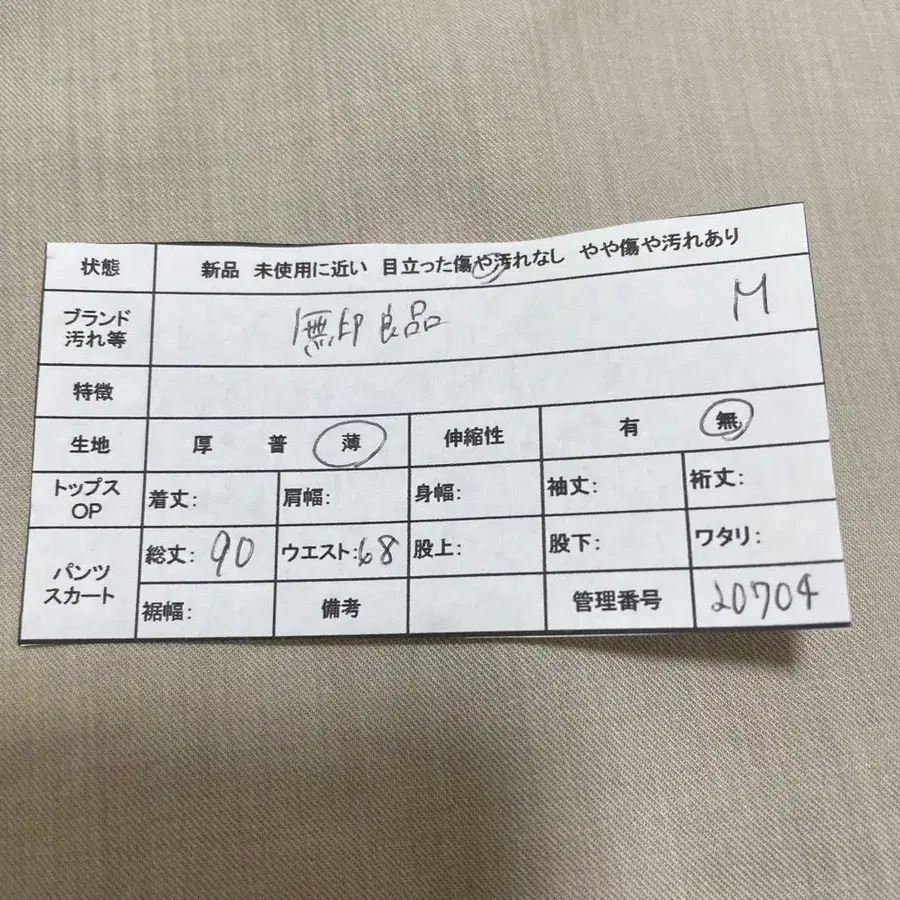 状態 新品 未使用に近い 目立った傷や汚れなし やや傷や汚れあり
ブランド
汚れ等 無印良品 M
特徴
生地 厚 普 薄 伸縮性 有 無
トップス
OP 着丈: 肩幅: 身幅: 袖丈: 裄丈:
パンツ
スカート 総丈: 90 ウエスト: 68 股上: 股下: ワタリ:
裾幅: 備考 管理番号 20704